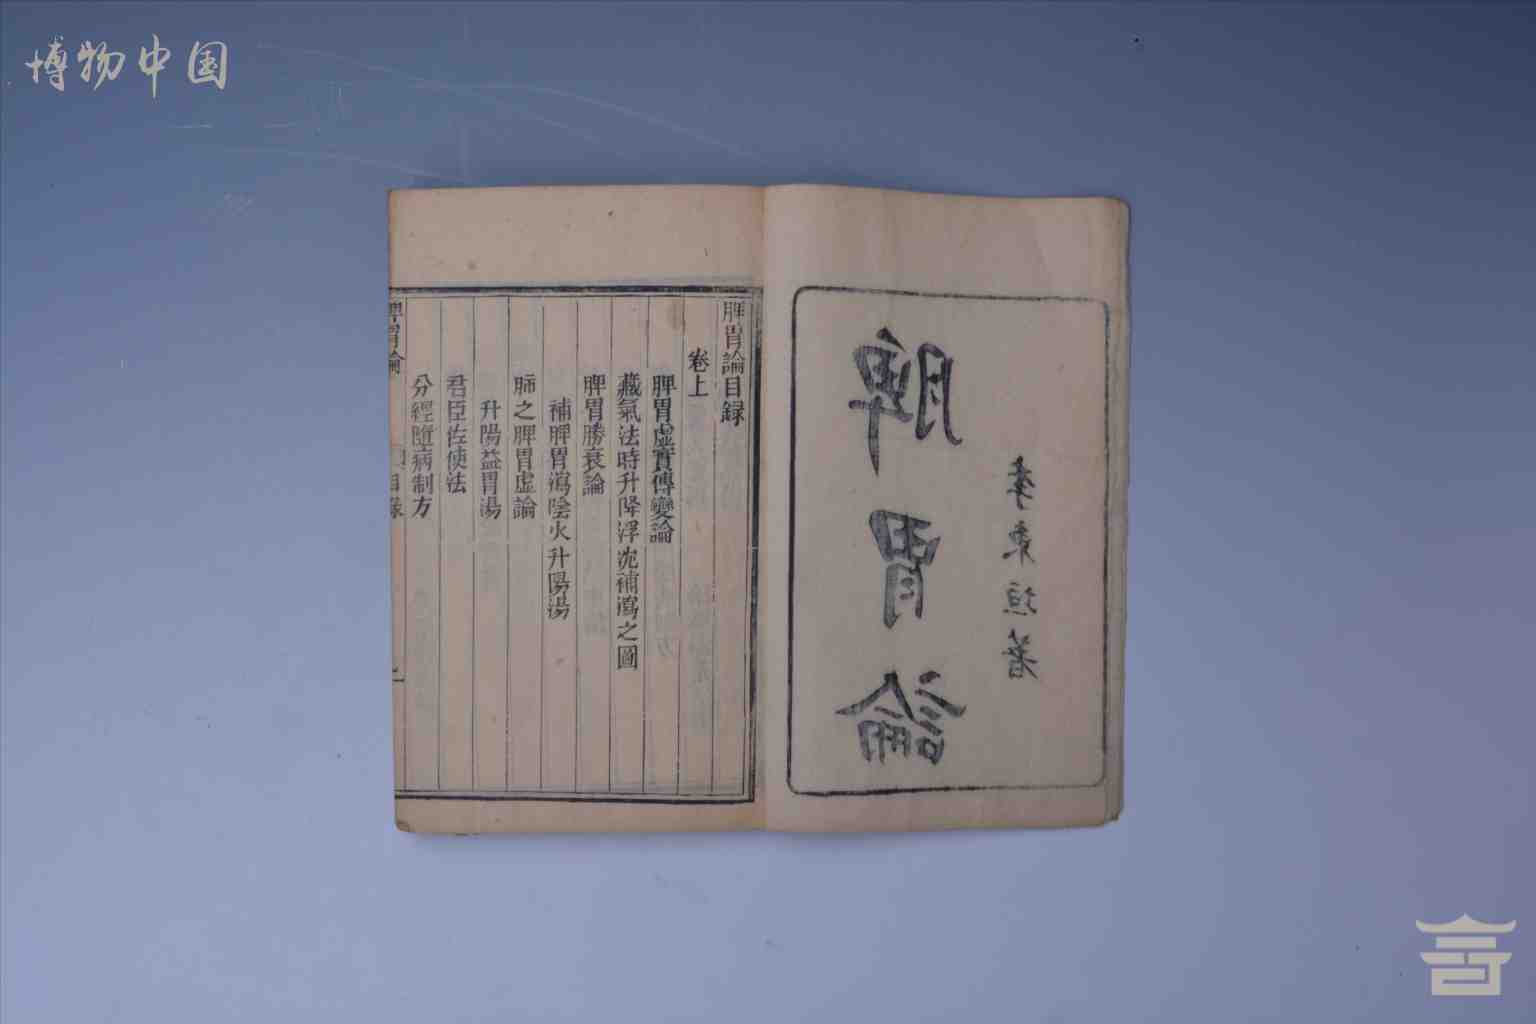 博物中国
李東垣著
脾胃論
脾胃論目録
卷上
脾胃虛實傳變論
藏氣法時升降浮沈補瀉之圖
脾胃勝衰論
補脾胃瀉陰火升陽湯
肺之脾胃虛論
升陽益胃湯
君臣佐使法
分經隨病制方
脾胃論
目録
一